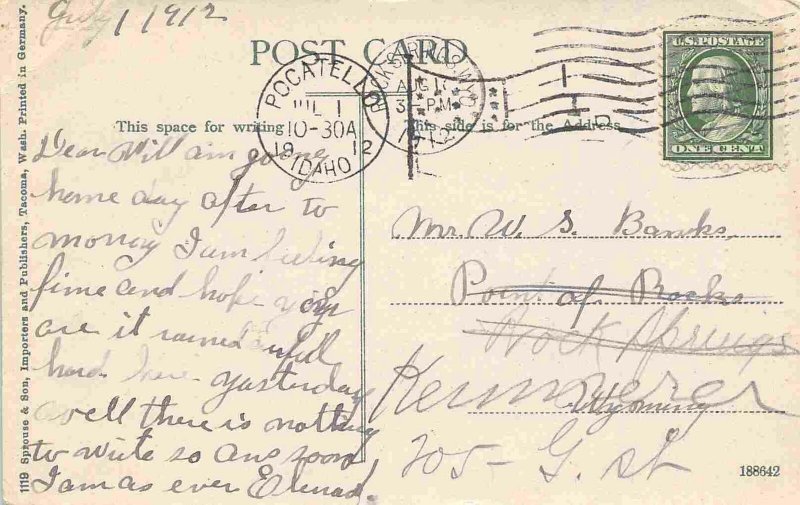 July 1 1912
POST CARD
POCATELLO
JUL 1
10-30A
19 12
IDAHO
ROCK SPRINGS WYO.
AUG
3-PM
U.S. POSTAGE
ONE CENT
This space for writing
This side is for the Address
Dear Will am going
home day after to
morrow I am feeling
fine and hope you
are it rained
hard here yesterday
well there is nothing
to write so ans soon
I am as ever
Mr. W. S. Banks,
Point of Rocks
Rock Springs
Kemmerer
Wyoming
205- G. St
188642
1119 Sprouse & Son, Importers and Publishers, Tacoma, Wash. Printed in Germany.